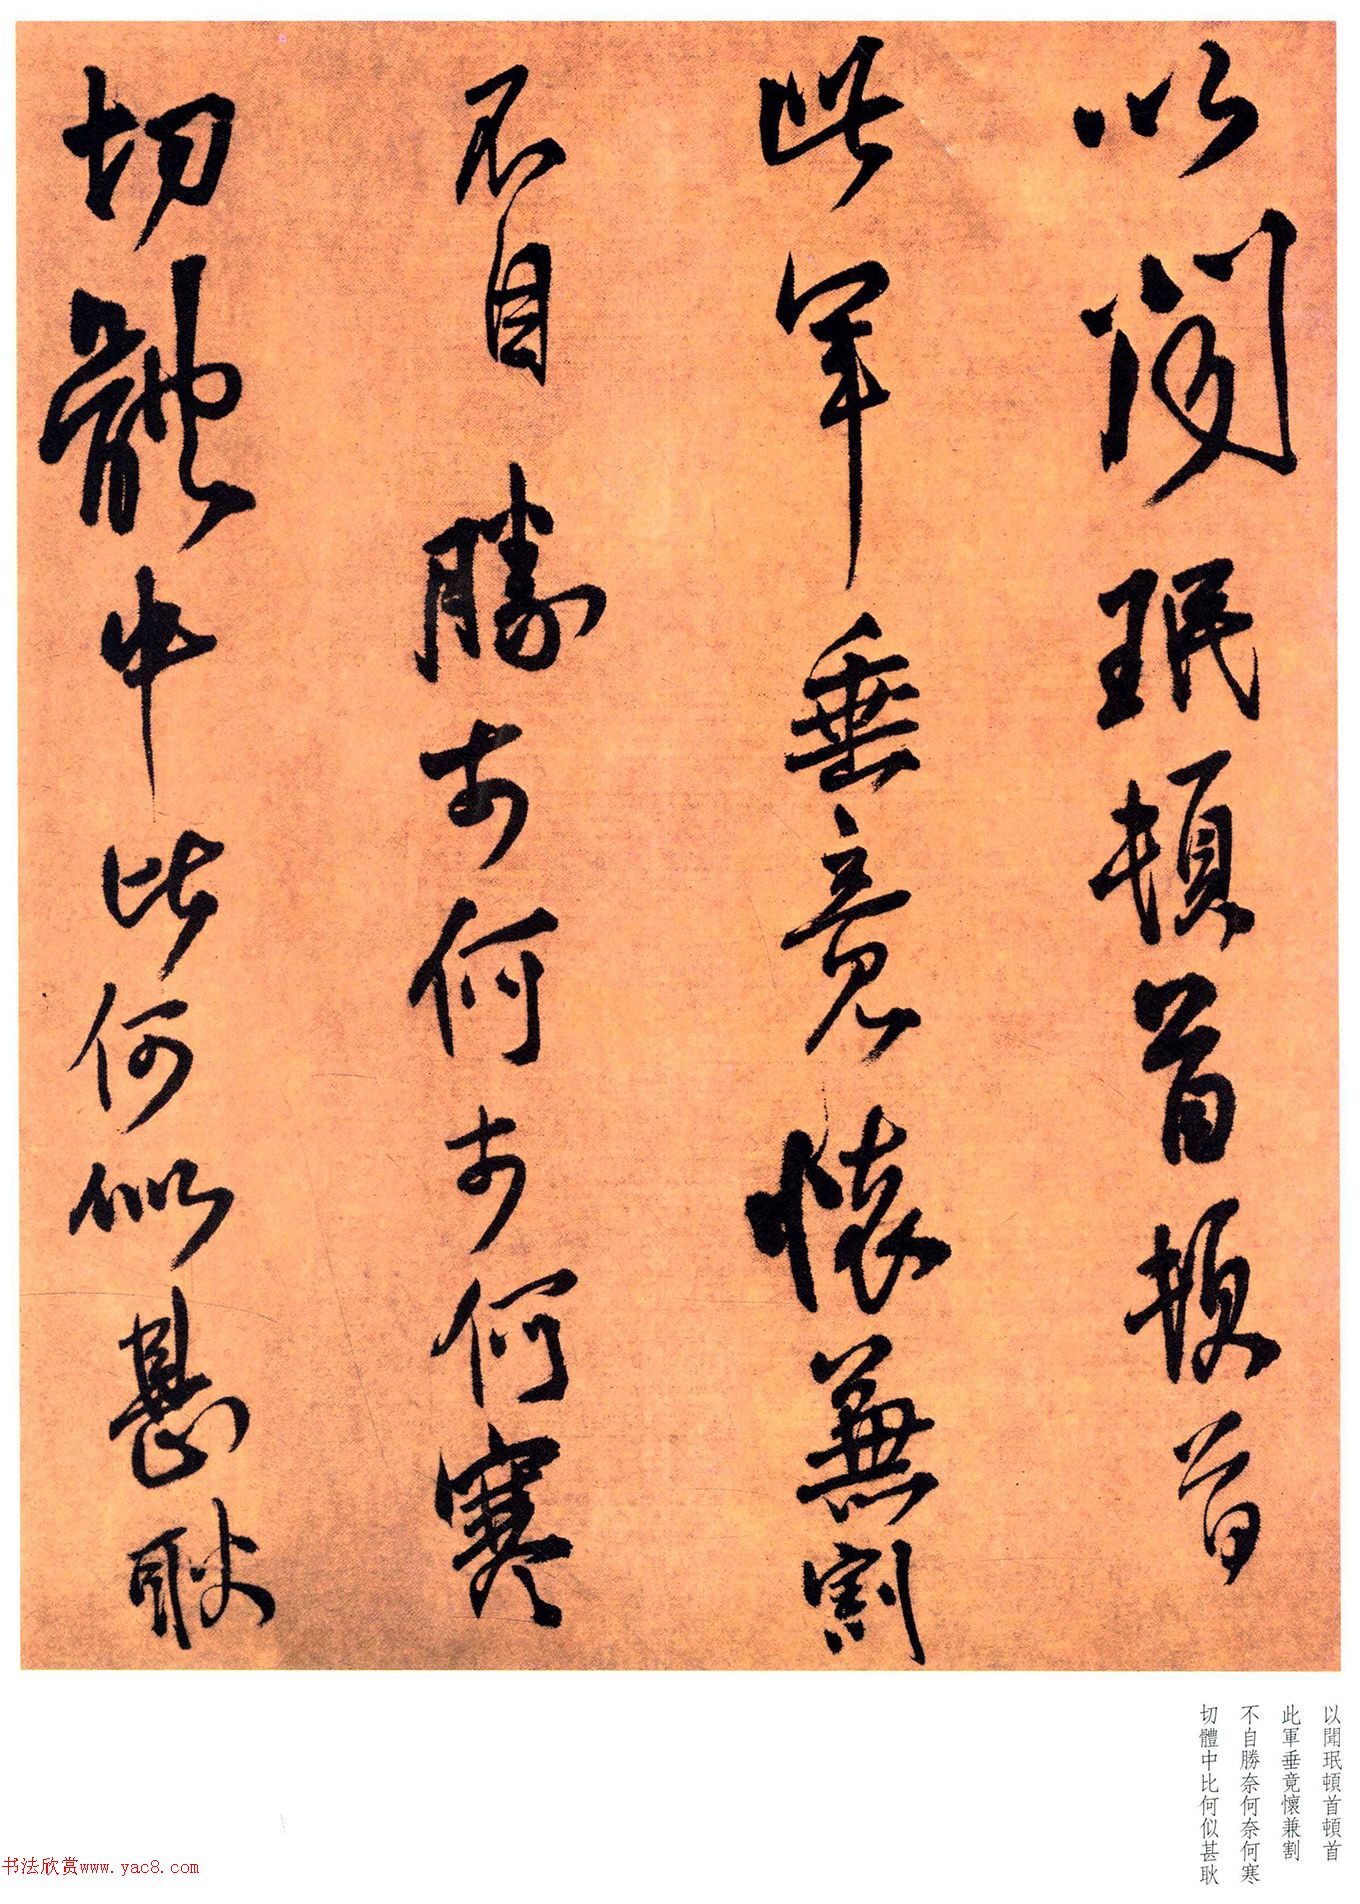 以聞珉頓首頓首
此軍垂竟懷兼割
不自勝奈何奈何寒
切體中比何似甚耿
以聞珉頓首頓首
此軍垂竟懷兼割
不自勝奈何奈何寒
切體中比何似甚耿
书法欣赏www.yac8.com